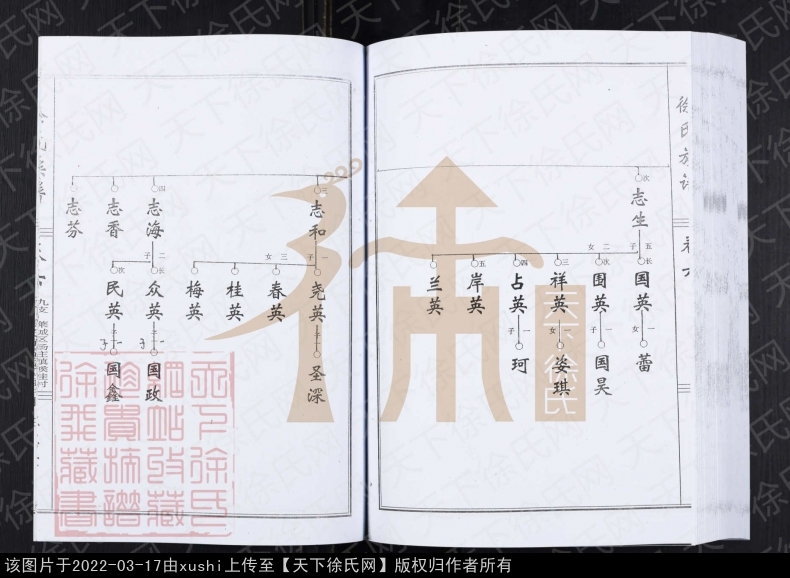 徐氏族谱
卷六
次
志生
子 五
长
国英
女 一
蕾
女 二
次
围英
子 一
国昊
三
祥英
女 一
姿琪
四
占英
子 一
珂
五
岸英
兰英
三
志和
子 一
尧英
子 一
圣深
女 三
春英
桂英
梅英
四
志海
子 二
长
众英
子 一
国政
次
民英
子 一
国鑫
志香
志芬
天下徐氏
天下徐氏网
该图片于2022-03-17由xushi上传至【天下徐氏网】版权归作者所有